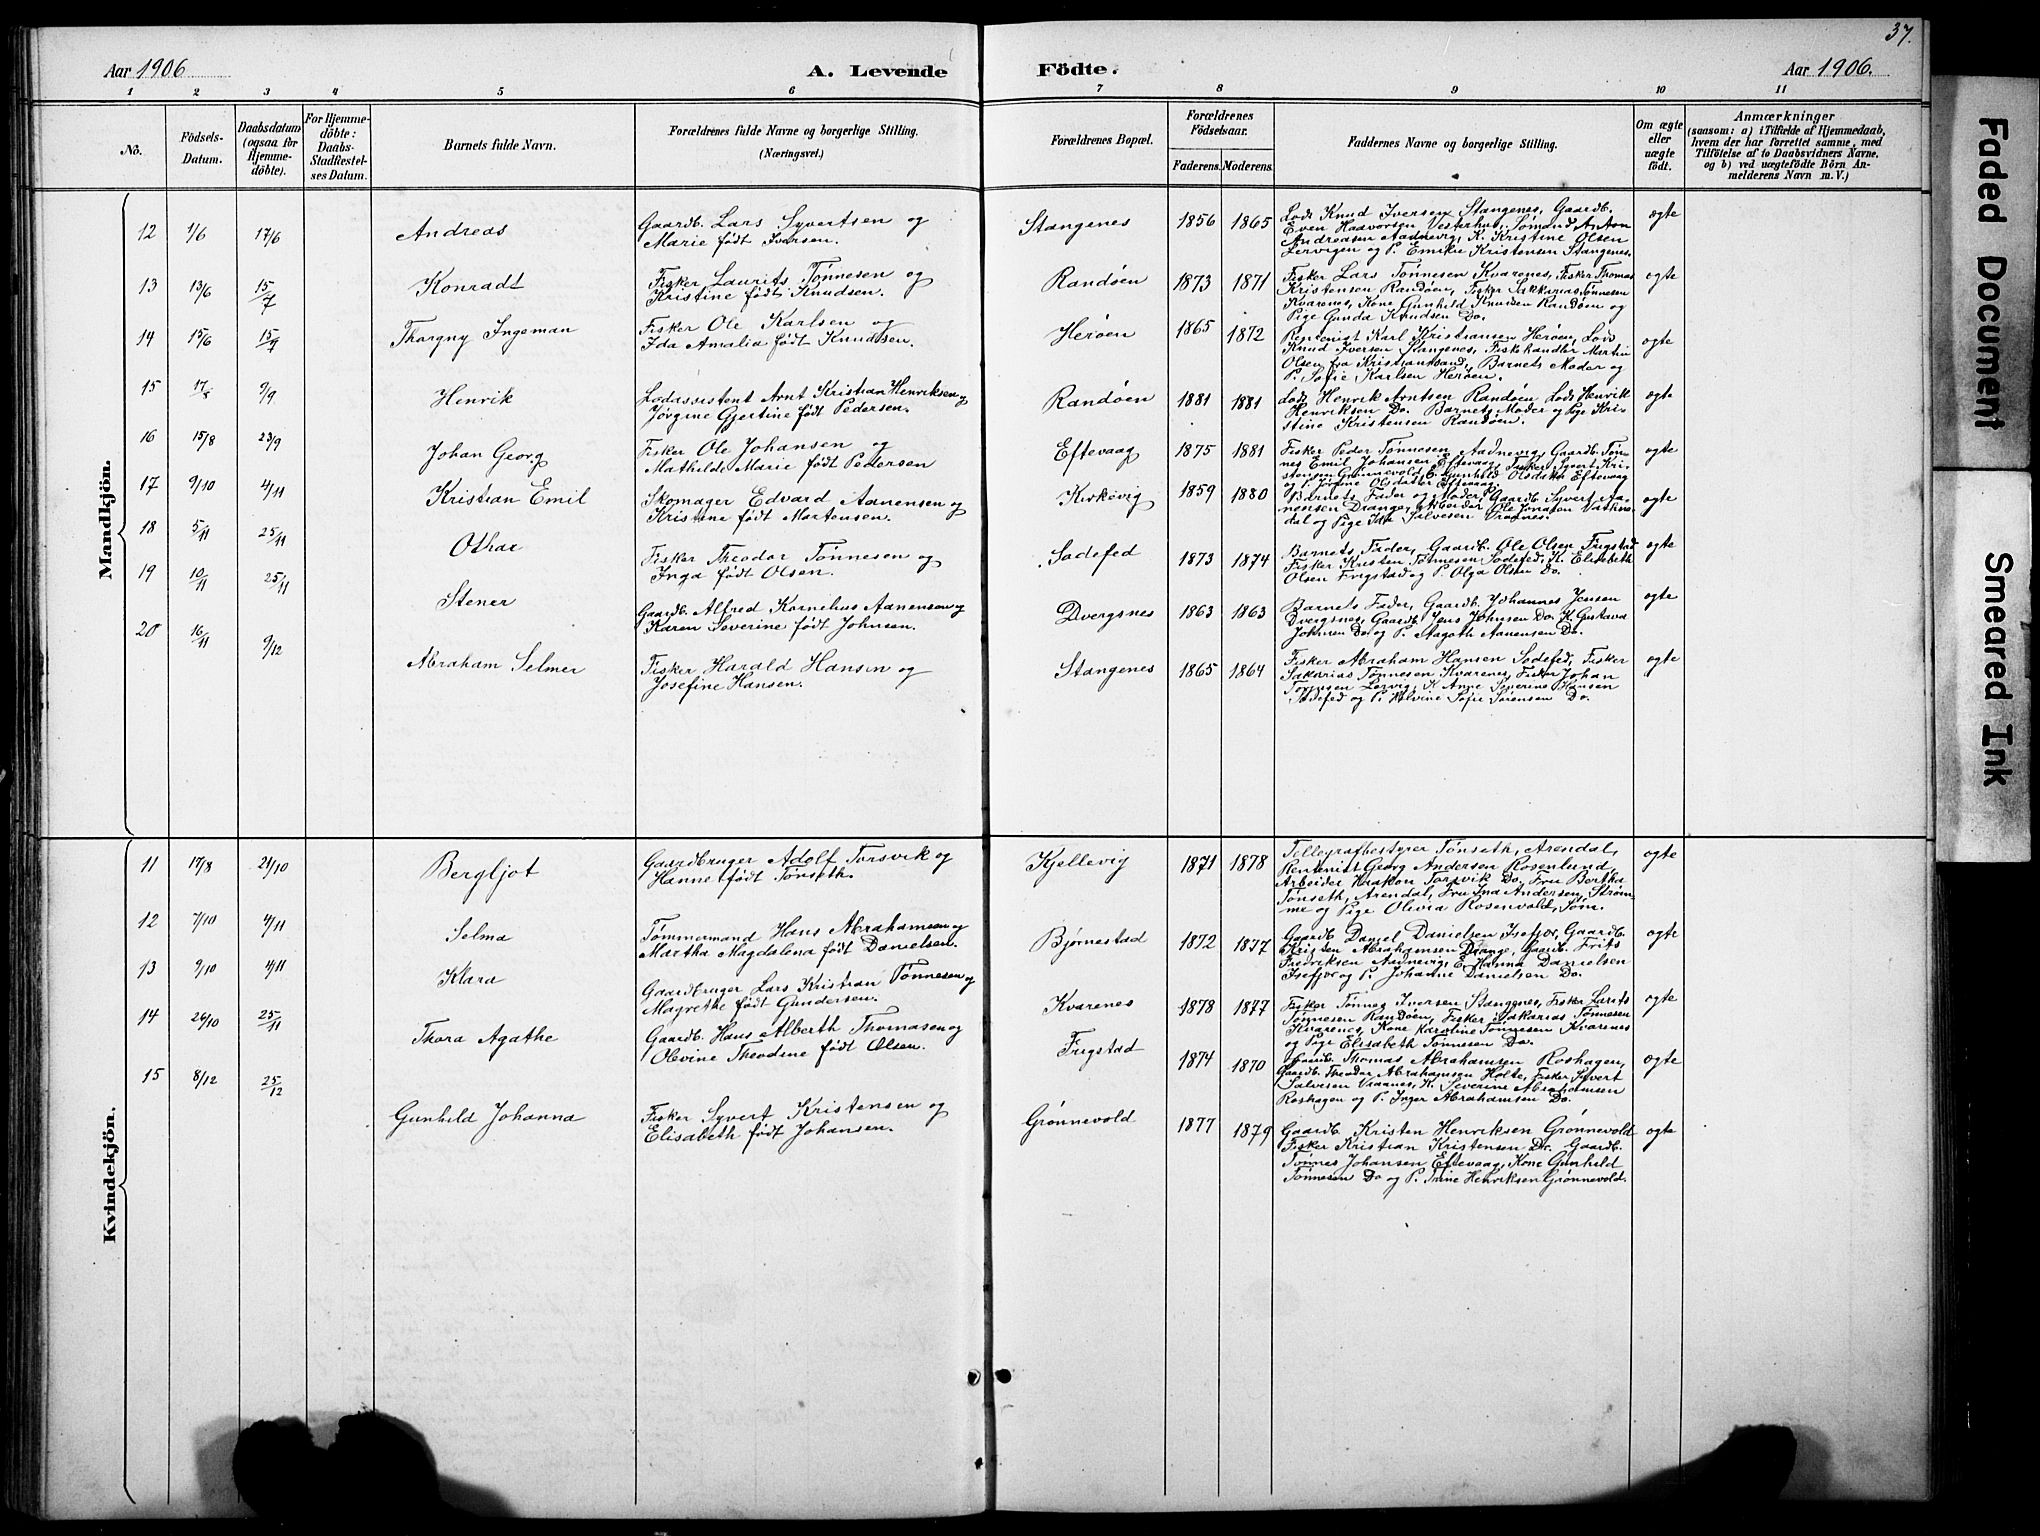 37.
Aar 1906
A. Levende
Födte.
Aar 1906.
1 2 3 4 5 6 7 8 9 10 11
No.
Födsels-Datum.
Daabsdatum (ogsaa for Hjemme-döbte).
For Hjemme-döbte: Daabs-Stadfæstel-ses Datum.
Barnets fulde Navn.
Forældrenes fulde Navne og borgerlige Stilling.
(Næringsvei.)
Forældrenes Bopæl.
Forældrenes Födselsaar.
Faderens. Moderens.
Faddernes Navne og borgerlige Stilling.
Om ægte eller uægte födt.
Anmærkninger
(saasom: a) i Tilfælde af Hjemmedaab,
hvem der har forrettet samme, med
Tilföielse af to Daabsvidners Navne,
og b) ved uægtefödte Börn An-
melderens Navn m. V.)
Mandkjön.
12 1/6 17/6 Andreas
Gaardb. Lars Syvertsen og
Marie født Iversen.
Stangenes 1856 1865
Lods Knud Iversen Stangenes, Gaardb.
Even Haavorsen Vesterhus, Sømand Anton
Andreasen Aadnevig, K. Kristine Olsen
Lervigen og P. Emilie Kristensen Stangenes.
ægte
13 13/6 15/7 Konradt
Fisker Laurits Tønnesen og
Kristine født Knudsen.
Randøen 1873 1871
Fisker Lars Tønnesen Kvarenes, Fisker Thomas
Kristensen Randøen, Fisker Sakkarias Tønnesen
Kvarenes, Kone Gunhild Knudsen Randøen og
Pige Gunda Knudsen Do.
ægte
14 15/6 15/7 Thorgny Ingeman
Fisker Ole Karlsen og
Ida Amalia født Knudsen.
Herøen 1865 1872
Rentenist Karl Kristiansen Herøen, Lods
Knud Iversen Stangenes, Fiskehandler Martin
Olsen fra Kristianssand, Barnets Moder og
P. Sofie Karlsen Herøen.
ægte
15 9/9 Henrik
Lodsassistent Arnt Kristian Henriksen og
Jørgine Gjertine født Pedersen.
Randøen 1881 1881
Lods Henrik Arntsen Randøen Lods Henrik
Henriksen Do. Barnets Moder og Pige Kri-
stine Kristensen Randøen.
ægte
16 15/8 23/9 Johan Georg
Fisker Ole Johansen og
Mathilde Marie født Pedersen
Eftevaag 1875 1881
Fisker Peder Tønnesen Aadnevig, Gaardb. Tøn-
nes Emil Johansen Eftevaag, Fisker Syvert Kri-
stensen Grønnevold E. Gunhild Olsdatter Eftevaag
og P. Jørgine Olsdatter Eftevaag.
ægte
17 9/10 4/11 Kristian Emil
Skomager Edvard Aanensen og
Kristine født Martensen.
Kirkevig 1859 1880
Barnets Fader og Moder, Gaardb. Syvert Aa-
nensen Drange, Arbeider Ole Jonsson Vatne-
dal og Pige Ida Salvesen Vraanes.
ægte
18 5/11 25/11 Othar
Fisker Theodor Tønnesen og
Inga født Olsen.
Sodefed 1873 1874
Barnets Fader, Gaardb. Ole Olsen Frigstad
Fisker Kristen Tønnesen Sodefed, K. Elisabeth
Olsen Frigstad og P. Olga Olsen Do.
ægte
19 10/11 25/11 Stener
Gaardb. Alfred Kornelius Aanensen og
Karen Severine født Johnsen.
Dvergsnes 1863 1863
Barnets Fader, Gaardb. Johannes Jensen
Dvergsnes, Gaardb. Jens Johnsen Do. K. Gustava
Johnsen Do. og P. Aagoth Aanensen Do.
ægte
20 16/11 9/12 Abraham Selmer
Fisker Harald Hansen og
Josefine Hansen.
Stangenes 1865 1864
Fisker Abraham Hansen Sodefed, Fisker
Sakarias Tønnesen Kvarenes, Fisker Johan
Tønnesen Lervig, K. Anne Severine Hansen
Sodefed og P. Halvine Sofie Sørensen Do.
ægte
Kvindekjön.
11 17/8 21/10 Bergljot
Gaardbruger Adolf Torsvik og
Hanne født Tønseth.
Kjellevig 1871 1878
Tellegrafbestyrer Tønseth, Arendal,
Rentenist Georg Andersen Rosenlund,
Arbeider Haakon Torsvik Do. Fru Bertha
Tønseth, Arendal, Fru Ina Andersen, Strøm-
me og Pige Olivia Rosenvold, Søm.
ægte
12 7/10 4/11 Selma
Tømmermand Hans Abrahamsen og
Martha Magdalena født Danielsen.
Bjørnestad 1872 1877
Gaardb. Daniel Danielsen Isefjor, Gaardb.
Kristen Abrahamsen Drange, Gaardb. Frits
Fredriksen Aadnevig, E. Hanna Danielsen
Isefjor og P. Johanne Danielsen Do.
ægte
13 9/10 4/11 Klara
Gaardbruger Lars Kristian Tønnesen og
Magrethe født Gundersen.
Kvarenes 1878 1877
Fisker Tønnes Iversen Stangenes, Fisker Larits
Tønnesen Randøen, Fisker Sakarias Tønnesen
Kvarenes, Kone Karoline Tønnesen Kvarenes
og Pige Elisabeth Tønnesen Do.
ægte
14 24/10 25/11 Thora Agathe
Gaardb. Hans Alberth Thomasen og
Olevine Theodine født Olsen.
Frigstad 1874 1870
Gaardb. Thomas Abrahamsen Roshagen,
Gaardb. Theodor Abrahamsen Holte, Fisker Syvert
Salvesen Vraanes, K. Severine Abrahamsen
Roshagen og P. Inger Abrahamsen Do.
ægte
15 8/12 25/12 Gunhild Johanna
Fisker Syvert Kristensen og
Elisabeth født Johansen.
Grønnevold 1877 1879
Gaardb. Kristen Henriksen Grønnevold
Fisker Kristian Kristensen Do. Gaardb.
Tønnes Johansen Eftevaag, Kone Gunhild
Tønnesen Do og P. Trine Henriksen Grønnevold.
ægte
Faded Document
Smeared Ink